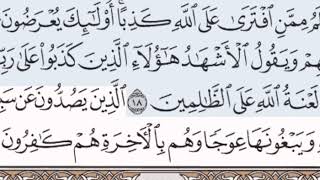 لَمُ مِمَّنِ ٱفْتَرَىٰ عَلَى ٱللَّهِ كَذِبًا ۚ أُو۟لَـٰٓئِكَ يُعْرَضُونَ
هِمْ وَيَقُولُ ٱلْأَشْهَـٰدُ هَـٰٓؤُلَآءِ ٱلَّذِينَ كَذَبُوا۟ عَلَىٰ رَبِّ
لَعْنَةُ ٱللَّهِ عَلَى ٱلظَّـٰلِمِينَ ١٨ ٱلَّذِينَ يَصُدُّونَ عَن سَبِ
وَيَبْغُونَهَا عِوَجًا وَهُم بِٱلْـَٔاخِرَةِ هُمْ كَـٰفِرُونَ